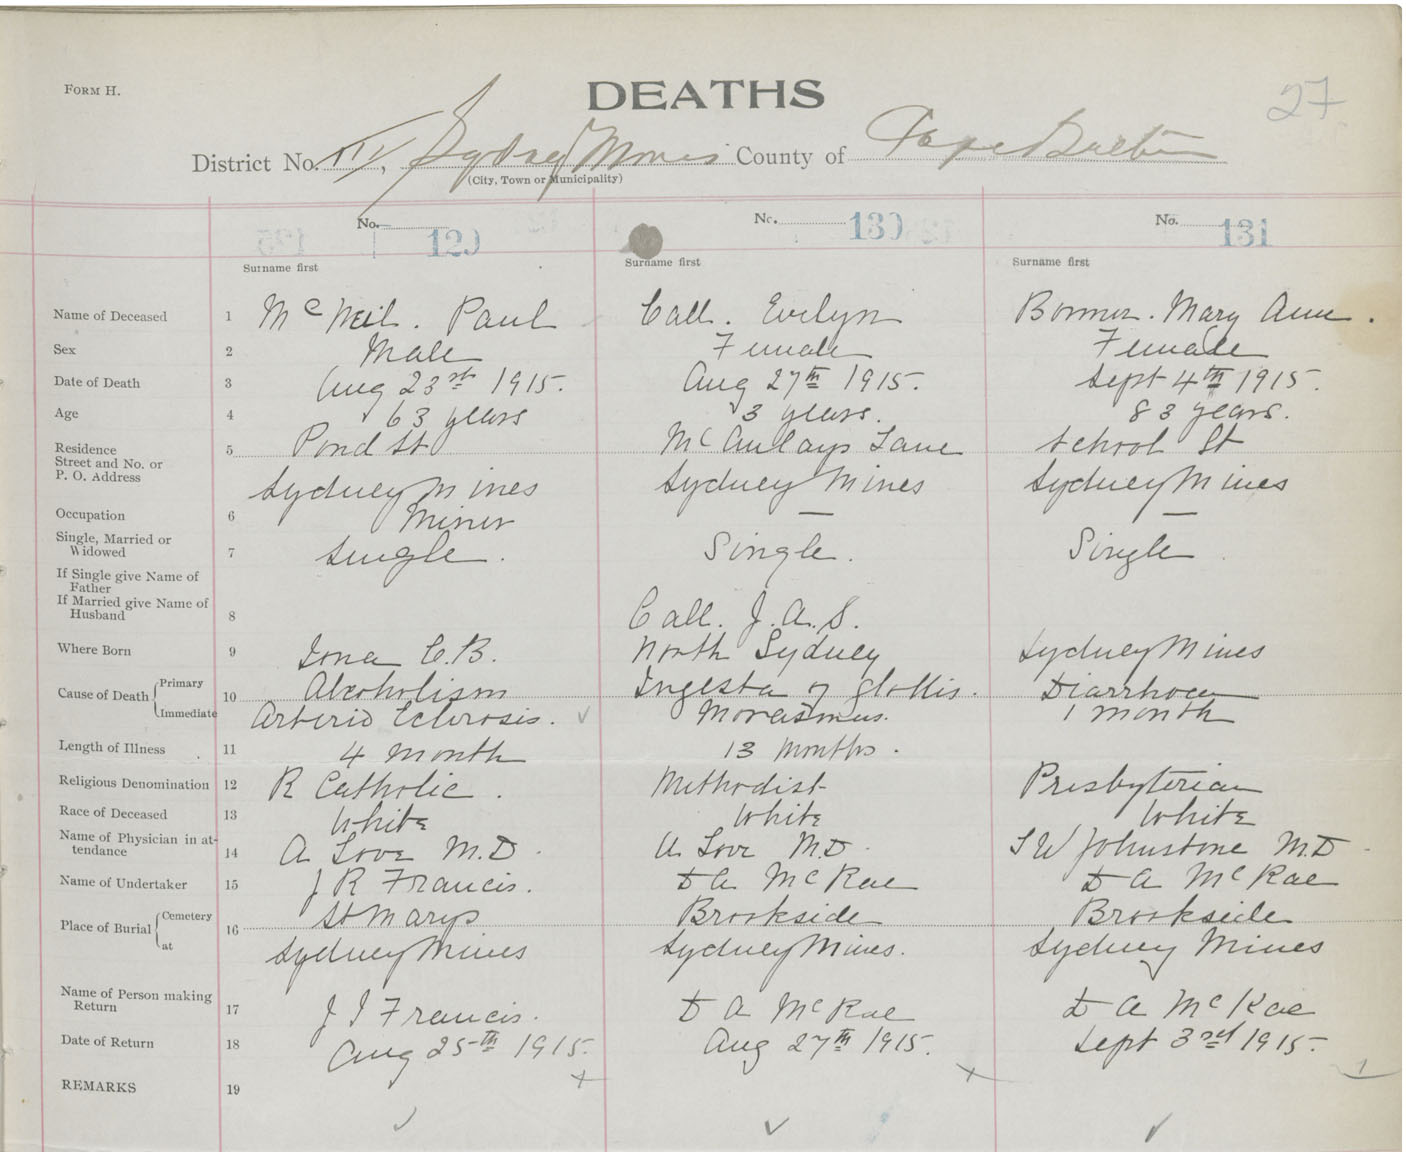 FORM H.
DEATHS
27
District No. III, Sydney Mines County of Cape Breton
(City, Town or Municipality)
No. 129 No. 130 No. 131
Surname first Surname first Surname first
Name of Deceased 1 McNeil. Paul Call. Evelyn Bonner. Mary Ann.
Sex 2 Male Female Female
Date of Death 3 Aug 23rd 1915. Aug 27th 1915. Sept 4th 1915.
Age 4 63 years 3 years. 83 years.
Residence 5 Pond St McAulays Lane School St
Street and No. or
P. O. Address Sydney Mines Sydney Mines Sydney Mines
Occupation 6 Miner — —
Single, Married or
Widowed 7 Single. Single. Single
If Single give Name of
Father
If Married give Name of
Husband 8 Call. J. A. S.
Where Born 9 Iona C.B. North Sydney Sydney Mines
Cause of Death Primary 10 Alcoholism Ingesta of glottis. Diarrhoea
Immediate Arterio Sclerosis. Morasmus. 1 month
Length of Illness 11 4 month 13 months.
Religious Denomination 12 R Catholic. Methodist Presbyterian
Race of Deceased 13 White White White
Name of Physician in at-
tendance 14 A Love M.D. A Love M.D. Johnstone M.D.
Name of Undertaker 15 J R Francis. D A McRae D A McRae
Place of Burial Cemetery 16 St Marys Brookside Brookside
at Sydney Mines Sydney Mines. Sydney Mines
Name of Person making
Return 17 J J Francis. D A McRae D A McRae
Date of Return 18 Aug 25th 1915. Aug 27th 1915. Sept 3rd 1915.
REMARKS 19